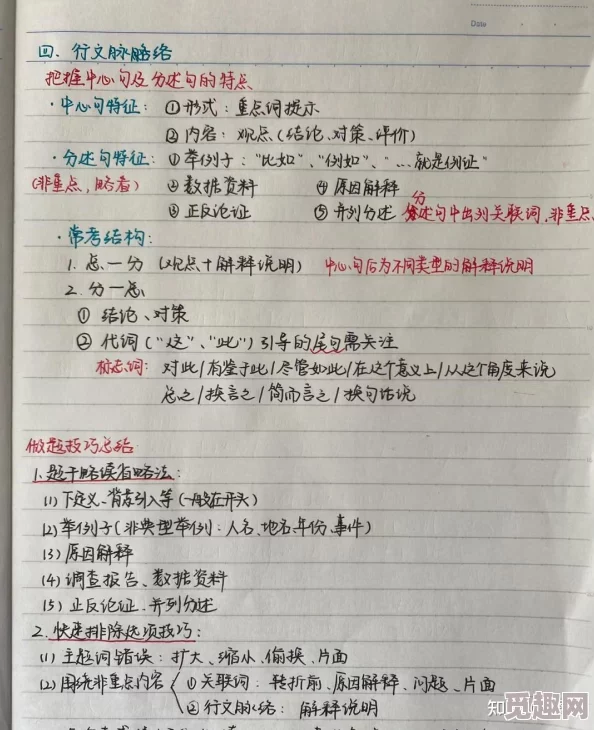 Date
四、行文脉络
把握中心句及分述句的特点
·中心句特征：①形式：重点词提示
②内容：观点（结论、对策、评价）
·分述句特征：①举例子："比如"、"例如"、"…就是例证"
（非重点，略看） ②数据资料 ④原因解释
③正反论证 ⑤并列分述 分述句中出现关联词，非重点
·常考结构：
1. 总一分（观点+解释说明） 中心句后为不同类型的解释说明
2. 分一总
①结论、对策
②代词（"这"、"此"）引导的尾句需关注
标志词：对此/有鉴于此/尽管如此/在这个意义上/从这个角度来说
总之/换言之/简而言之/换句话说
做题技巧总结
1.题干略读省略法：
(1)下定义、背景引入等（一般在开头）
(2)举例子（非典型举例：人名、地名、年份、事件）
(3)原因解释
(4)调查报告、数据资料
(5)正反论证、并列分述
2.快速排除选项技巧：
(1)主题词错误：扩大、缩小、偷换、片面
(2)围绕非重点内容 ①关联词：转折前、原因解释、问题、片面
②行文脉络：解释说明
知
觅趣网